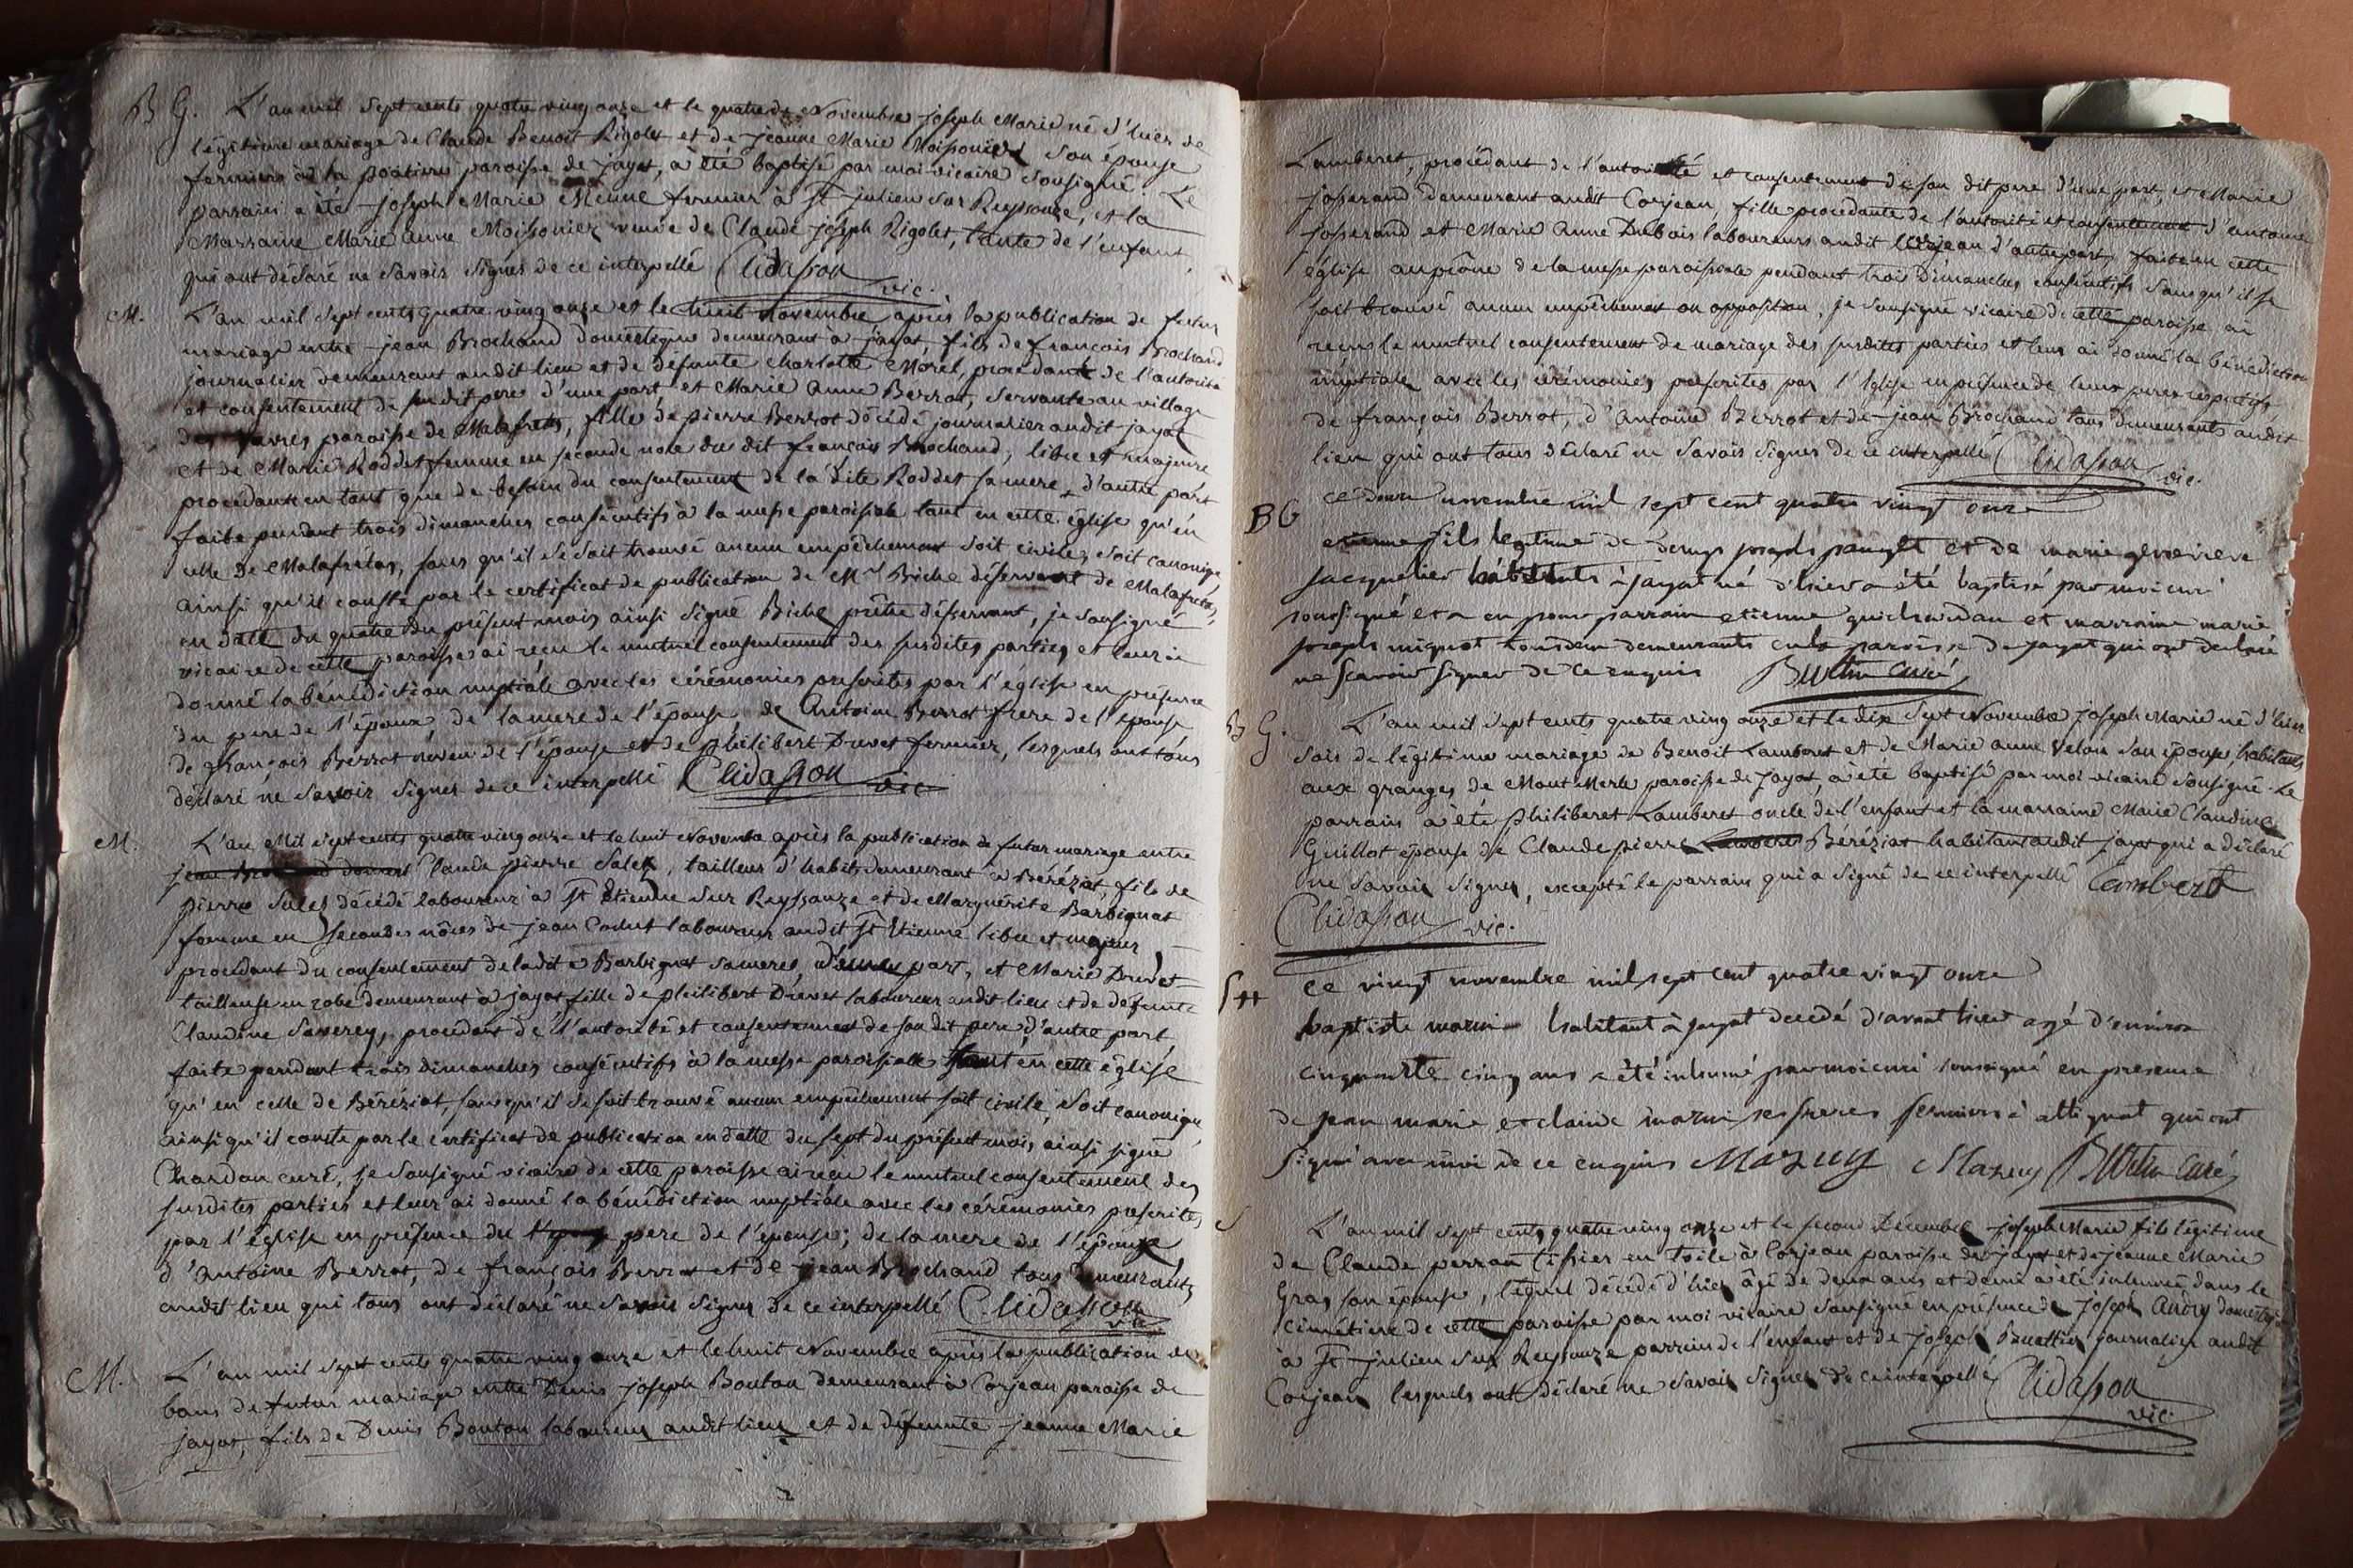 B G. L'an mil sept cents quatre ving onze et le quatre de Novembre joseph Marie né d'hier de
légitime mariage de Claude Benoit Rigolet et de jeanne Marie Moissonier son épouse
fermiers à la poatiere paroisse de Jayat, à été baptisé par moi vicaire soussigné. Le
parrain a été joseph Marie Menne fermier à St julien sur Reyssouze, et la
Marraine Marie Anne Moissonier veuve de Claude joseph Rigolet, tante de l'enfant,
qui ont déclaré ne savoir signer de ce interpellé Clidasson vic.
M. L'an mil sept cents quatre ving onze et le huit Novembre après la publication de futur
mariage entre jean Brochand domestique demeurant à jayat, fils de francois Brochand
journalier demeurant audit lieu et de défunte Charlotte Morel, procédant de l'autorité
et consentement de son dit pere d'une part et Marie Anne Berrot, servante au village
des paroisse de Malafretas, fille de pierre Berrot décédé journalier audit jayat
et de Marie Roddet femme en seconde noce du dit françois Brochand, libre et majeure
procédante en tant que de besoin du consentement de la dite Roddet sa mere, d'autre part
faite pendant trois dimanches consécutifs à la messe paroissiale tant en cette église qu'en
celle de Malafretas, sans qu'il se soit trouvé aucun empêchement soit civile, soit canonique
ainsi qu'il conste par le certificat de publication de Mr Biche déservant de Malafretas,
en datte du quatre du présent mois ainsi signé Biche prêtre déservant, je soussigné
vicaire de cette paroisse ai reçu le mutuel consentement des susdites parties et leur ai
donné la bénédiction nuptiale avec les cérémonies prescrites par l'église en présence
du pere de l'époux de la mere de l'épouse de Antoine Berrot frere de l'épouse
de françois Berrot neveu de l'épouse et de philibert Drevet fermier, lesquels ont tous
déclaré ne savoir signer de ce interpellé Clidasson vic
M. L'an Mil sept cents quatre ving onze et le huit Novembre après la publication de futur mariage entre
jean Brochand Claude pierre Sales, tailleur d'habits demeurant à Béréziat, fils de
pierre Sales décédé laboureur à St Etienne sur Reyssouze et de Marguerite Barbignat
femme en secondes nôces de jean Cadet laboureur audit St Etienne libre et majeur
procédant du consentement de ladite Barbignat sa mere, d'une part, et Marie Drevet
tailleuse en robe demeurant à jayat fille de philibert Drevet laboureur audit lieu et de défunte
Claudine Saverey, procédant de l'autorité et consentement de son dit pere, d'autre part
faite pendant trois dimanches consécutifs à la messe paroissiale tant en cette église
qu'en celle de Béréziat, sans qu'il se soit trouvé aucun empêchement soit civile, soit canonique,
ainsi qu'il conste par le certificat de publication en datte du sept du présent mois, ainsi signé
Chardon curé, je soussigné vicaire de cette paroisse ai reçu le mutuel consentement des
susdites parties et leur ai donné la bénédiction nuptiale avec les cérémonies prescrites
par l'église en présence du pere de l'épouse; de la mere de l'époux
d'antoine Berrot, de françois Berrot et de jean Brochand tous demeurants
audit lieu qui tous ont déclaré ne savoir signer de ce interpellé Clidasson vic
M. L'an mil sept cents quatre ving onze et le huit Novembre après la publication de
bans de futur mariage entre Denis joseph Bouton demeurant à Corjean paroisse de
jayat, fils de Denis Bouton laboureur audit lieu et de défunte jeanne Marie
Lamberet, procédant de l'autorité et consentement de son dit pere d'une part, et Marie
josserand demeurant audit Corjean, fille procédante de l'autorité et consentement d'antoine
josserand et Marie Anne Dubois laboureurs audit Corjean d'autre part, faite en cette
église au prône de la messe paroissiale pendant trois dimanches consécutifs sans qu'il se
soit trouvé aucun empêchement ou opposition, je soussigné vicaire de cette paroisse ai
reçu le mutuel consentement de mariage des susdites parties et leur ai donné la bénédiction
nuptiale avec les cérémonies prescrites par l'église en présence de leurs peres respectifs,
de françois Berrot, d'Antoine Berrot et de jean Brochand tous demeurants audit
lieu qui ont tous déclaré ne savoir signer de ce interpellé Clidasson vic.
BG ce novembre mil sept cent quatre vingt onze
etienne fils legitime de denys joseph et de marie genevieve
habitants à jayat né d'hier a été baptisé par moi curé
soussigné et a eu pour parrain etienne guichardan et marraine marie
joseph mignot tousdeux demeurants en la paroisse de jayat qui ont declaré
ne scavoir signer de ce enquis curé
B G. L'an mil sept cents quatre ving onze et le dix sept Novembre joseph Marie né d'hier
soir de légitime mariage de Benoit Lamberet et de Marie anne Velon son épouse habitants
aux granges de Mont Merle paroisse de jayat, à été baptisé par moi vicaire soussigné. Le
parrain à été philiberet Lamberet oncle de l'enfant et la marraine Marie Claudine
Guillot épouse de Claude pierre Lamberet Béréziat habitant audit jayat qui a déclaré
ne savoir signer, excepté le parrain qui a signé de ce interpellé Lamberet
Clidasson vic.
S ce vingt novembre mil sept cent quatre vingt onze
baptiste mazui habitant à jayat decedé d'avant hier agé d'environ
cinquante cinq ans a été inhumé par moi curé soussigné en presence
de jean marie et claude mazui ses freres fermiers à attignat qui ont
signé avec moi de ce enquis Mazuy Mazuy curé
S L'an mil sept cents quatre ving onze et le second Décembre joseph Marie fils légitime
de Claude perran tissier en toile à Corjean paroisse de jayat et de jeanne Marie
Gras son épouse, lequel décédé d'hier âgé de deux ans et demi à été inhumé dans le
cimétiere de cette paroisse par moi vicaire soussigné en présence de joseph Andry domestique
à St julien sur Reyssouze parrain de l'enfant et de joseph journalier audit
Corjean lesquels ont déclaré ne savoir signer de ce interpellé Clidasson
vic.